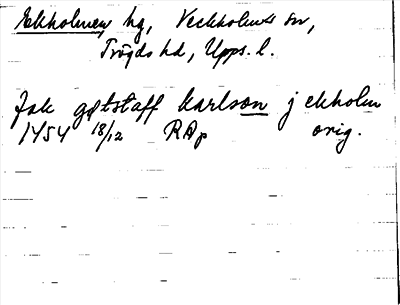 Ekholmen, hg, Veckholms sn,
Trögds hd, Upps. l.
Jak gøtstaff karlson j ekholm
1454 18/12 RAp orig.